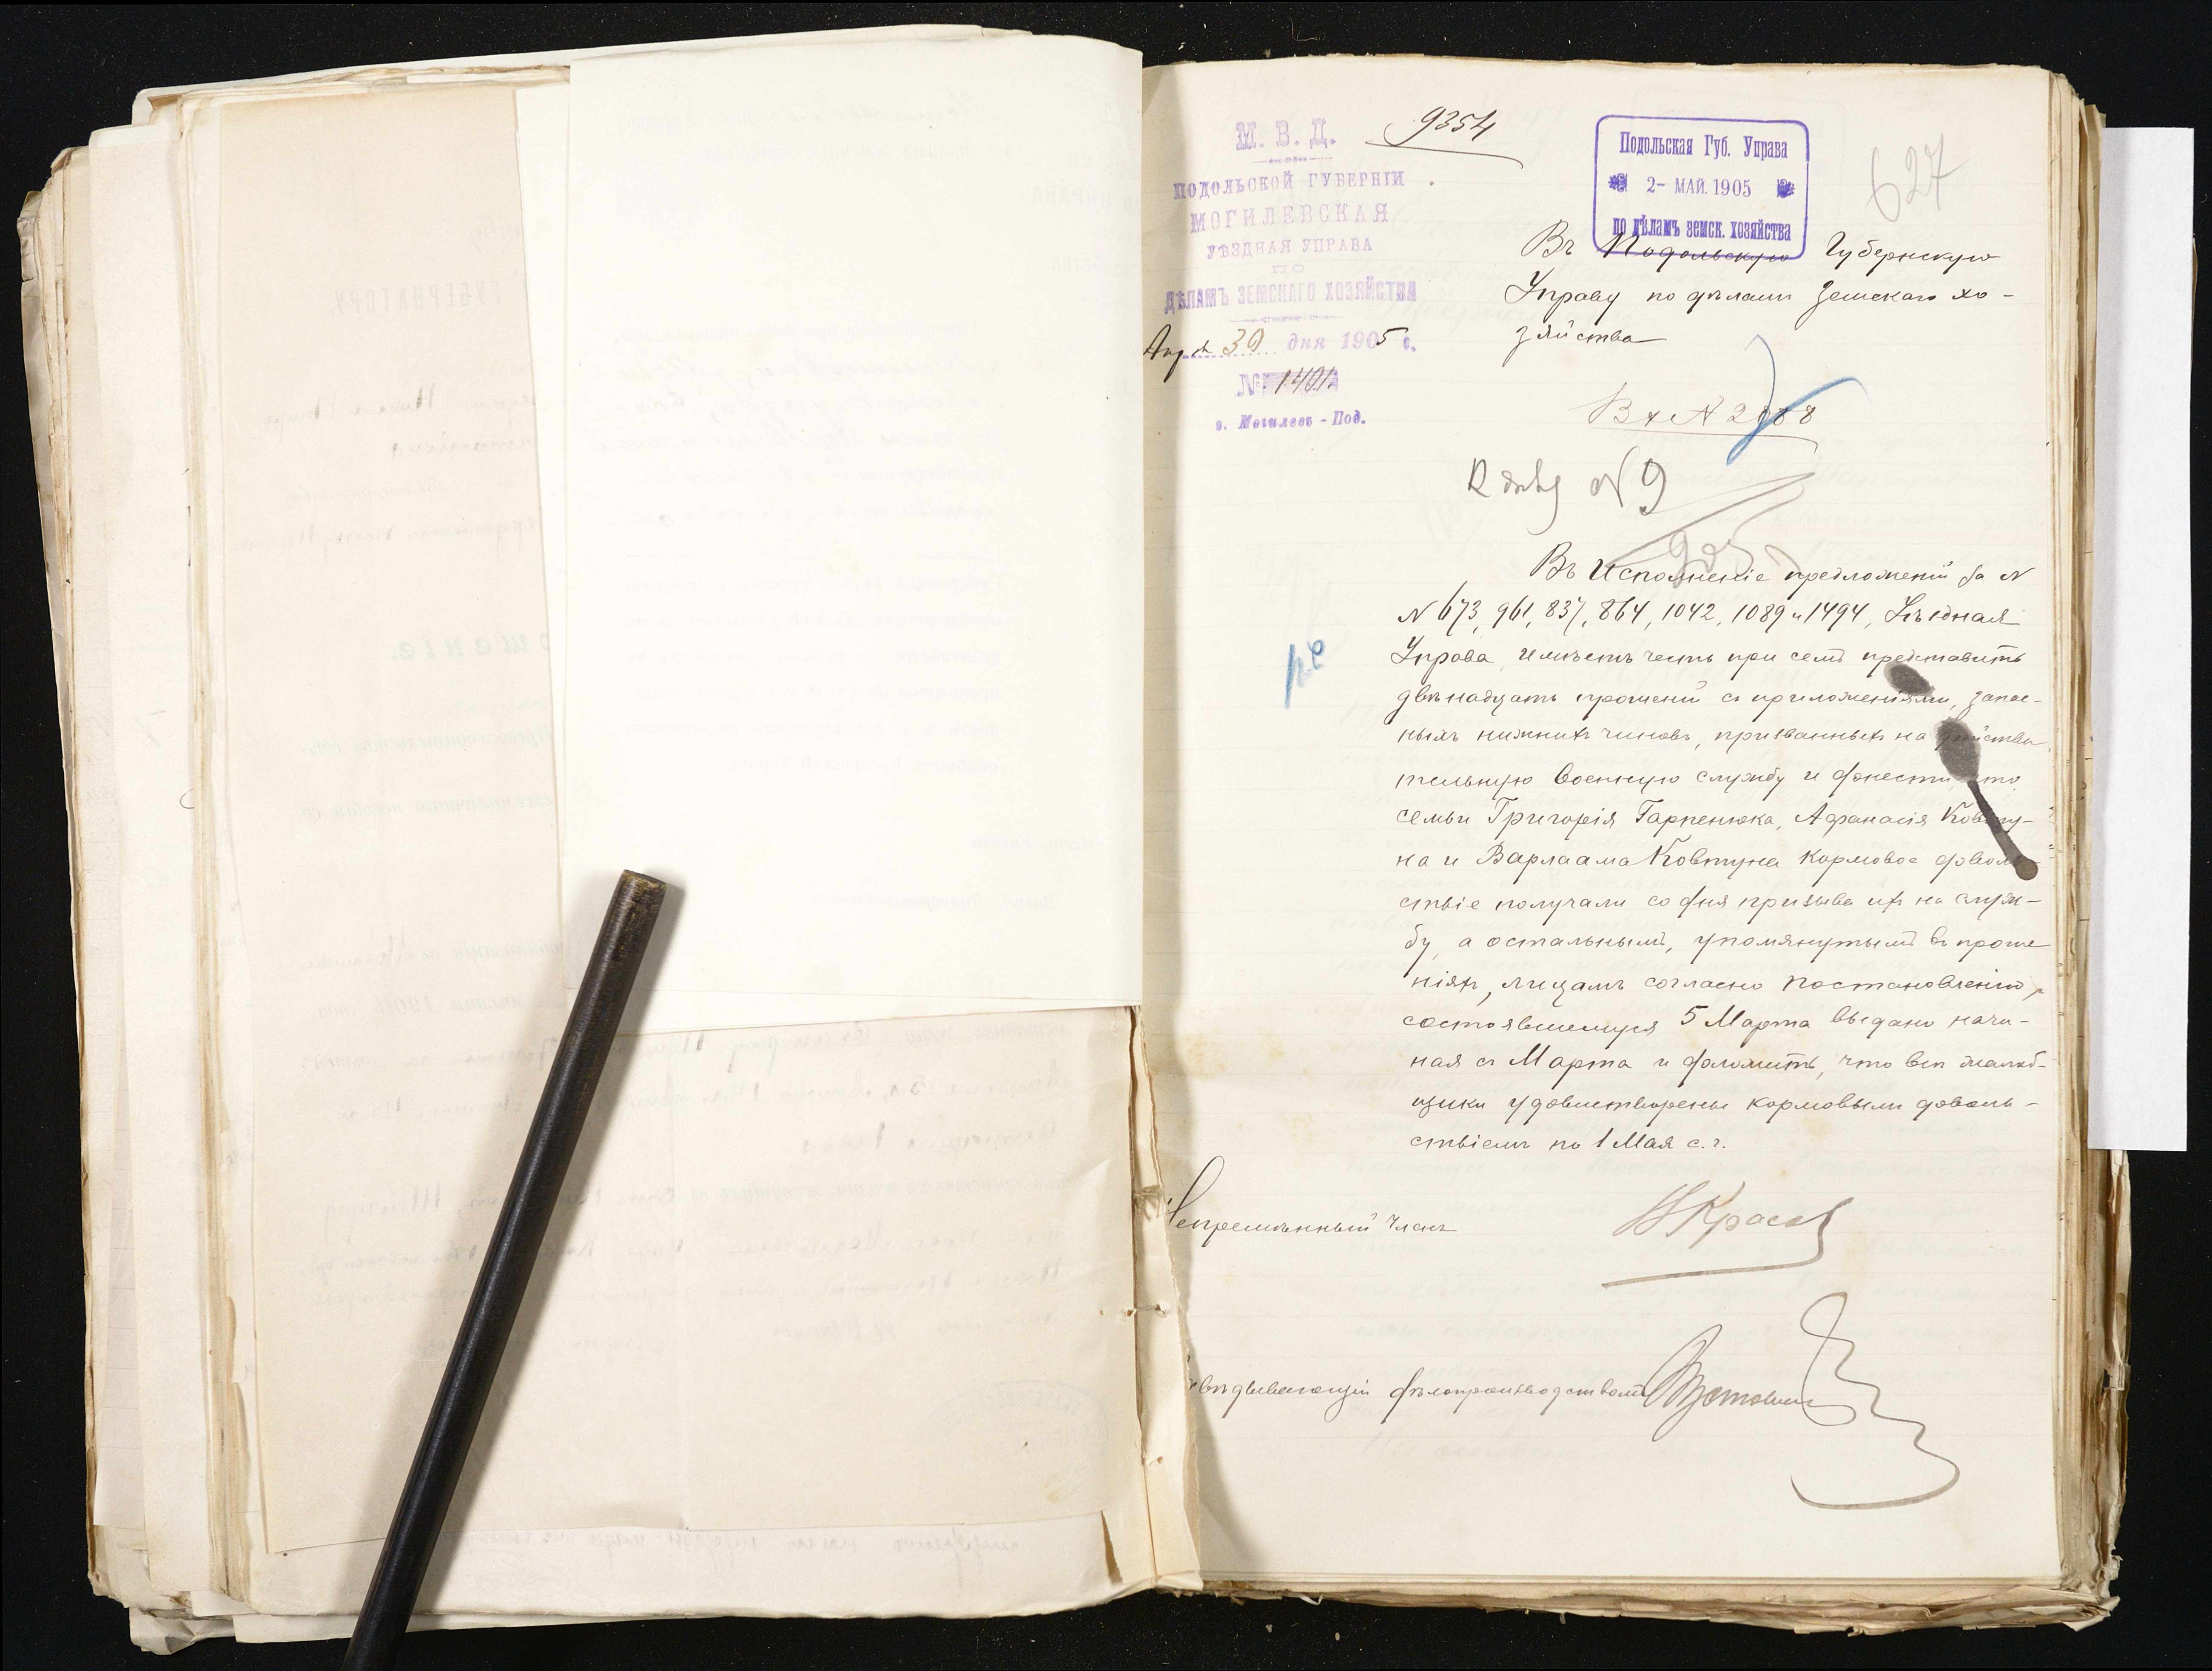 9354
627
М. В. Д.
ПОДОЛЬСКОЙ ГУБЕРНІИ
МОГИЛЕВСКАЯ
УѢЗДНАЯ УПРАВА
ПО
ДѢЛАМЪ ЗЕМСКАГО ХОЗЯЙСТВА
30 дня 1905 г.
№ 1401
г. Могилевъ-Под.
Подольская Губ. Управа
2- МАЙ. 1905
по дѣламъ земск. хозяйства
Въ Подольскую Губернскую
Управу по дѣламъ Земскаго хо-
зяйства
К дѣлу № 9
Въ исполненіе предложеній за №
№ 673, 961, 837, 864, 1042, 1089 и 1494, Уѣздная
Управа имѣетъ честь при семъ представить
двѣнадцать прошеній съ приложеніями, запас-
ныхъ нижнихъ чиновъ, призванныхъ на действи
тельную военную службу и донести, что
семьи Григорія Гарпенюка, Афанасія Ковту-
на и Варлаама Ковтуна кормовое доволь-
ствіе получали со дня призыва ихъ на служ-
бу, а остальнымъ, упомянутымъ въ проше
ніяхъ, лицамъ согласно постановленію,
состоявшемуся 5 Марта выдано начи-
ная съ Марта и доложить, что всѣ жалоб-
щики удовлетворены кормовымъ доволь-
ствіемъ по 1 Мая с. г.
Непремѣнный Членъ
дѣлопроизводствомъ